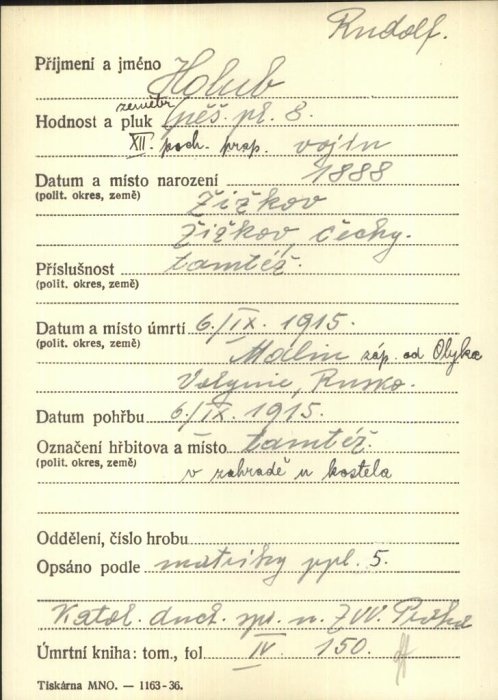 Rudolf.
Příjmení a jméno Holub
zeměbr.
Hodnost a pluk pěš. pl. 8.
XII. poch. prap. vojín
Datum a místo narození 1888
(polit. okres, země) Žižkov
Žižkov, Čechy.
Příslušnost tamtéž.
(polit. okres, země)
Datum a místo úmrtí 6./IX. 1915.
(polit. okres, země) Malin záp. od Olyka
Volynie, Rusko.
Datum pohřbu 6./IX. 1915.
Označení hřbitova a místo tamtéž.
(polit. okres, země)
v zahradě u kostela
Oddělení, číslo hrobu
Opsáno podle matriky ppl. 5.
Katol. duch. spr. n. ZVV. Praha
Úmrtní kniha: tom., fol IV. 150.
Tiskárna MNO. — 1163-36.